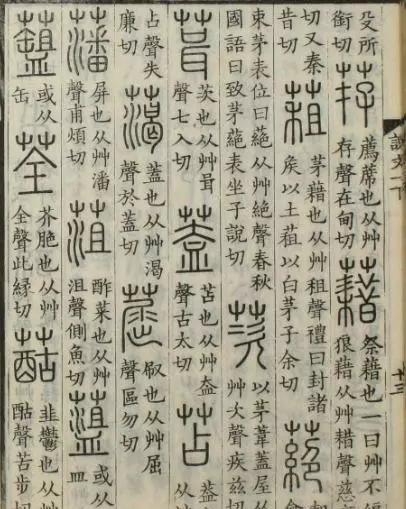 殳所
銜切
荐
薦蓆也从艸
存聲在甸切
藉
祭藉也一曰艸不編
狼藉从艸耤聲慈
切又秦
昔切
蒩
茅藉也从艸租聲禮曰封諸
矦以土蒩以白茅子余切
蕝
束茅表位曰蕝从艸絕聲春秋
國語曰致茅蕝表坐子說切
茨
以茅葦蓋屋从
艸次聲疾兹切
葺
茨也从艸咠
聲七入切
蓋
苫也从艸盍
聲古太切
苫
蓋
从
占聲失
廉切
䕣
蓋也从艸渴
聲於蓋切
䓛
㕞也从艸屈
聲區勿切
藩
屏也从艸潘
聲甫煩切
菹
酢菜也从艸
沮聲側魚切
或从
皿
或从
缶
荃
芥脃也从艸
全聲此緣切
韭鬱也从艸
酤聲苦步切
說文一下